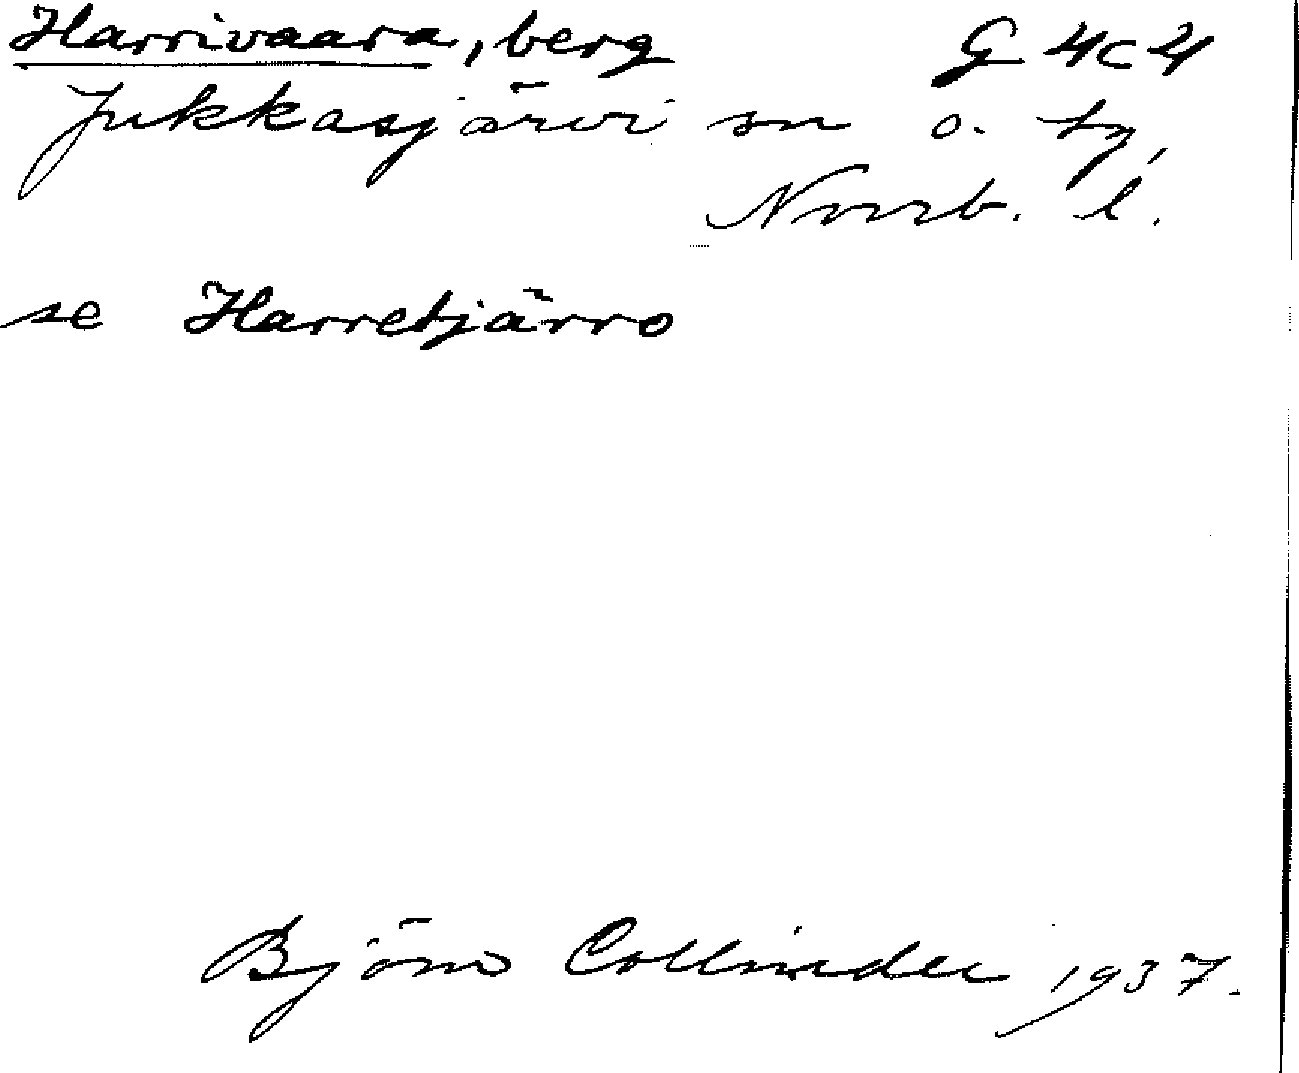 Harrivaara, berg G 4c4
Jukkasjärvi sn o. tg,
Norrb. l.
se Harretjårro
Björn Collinder 1937.